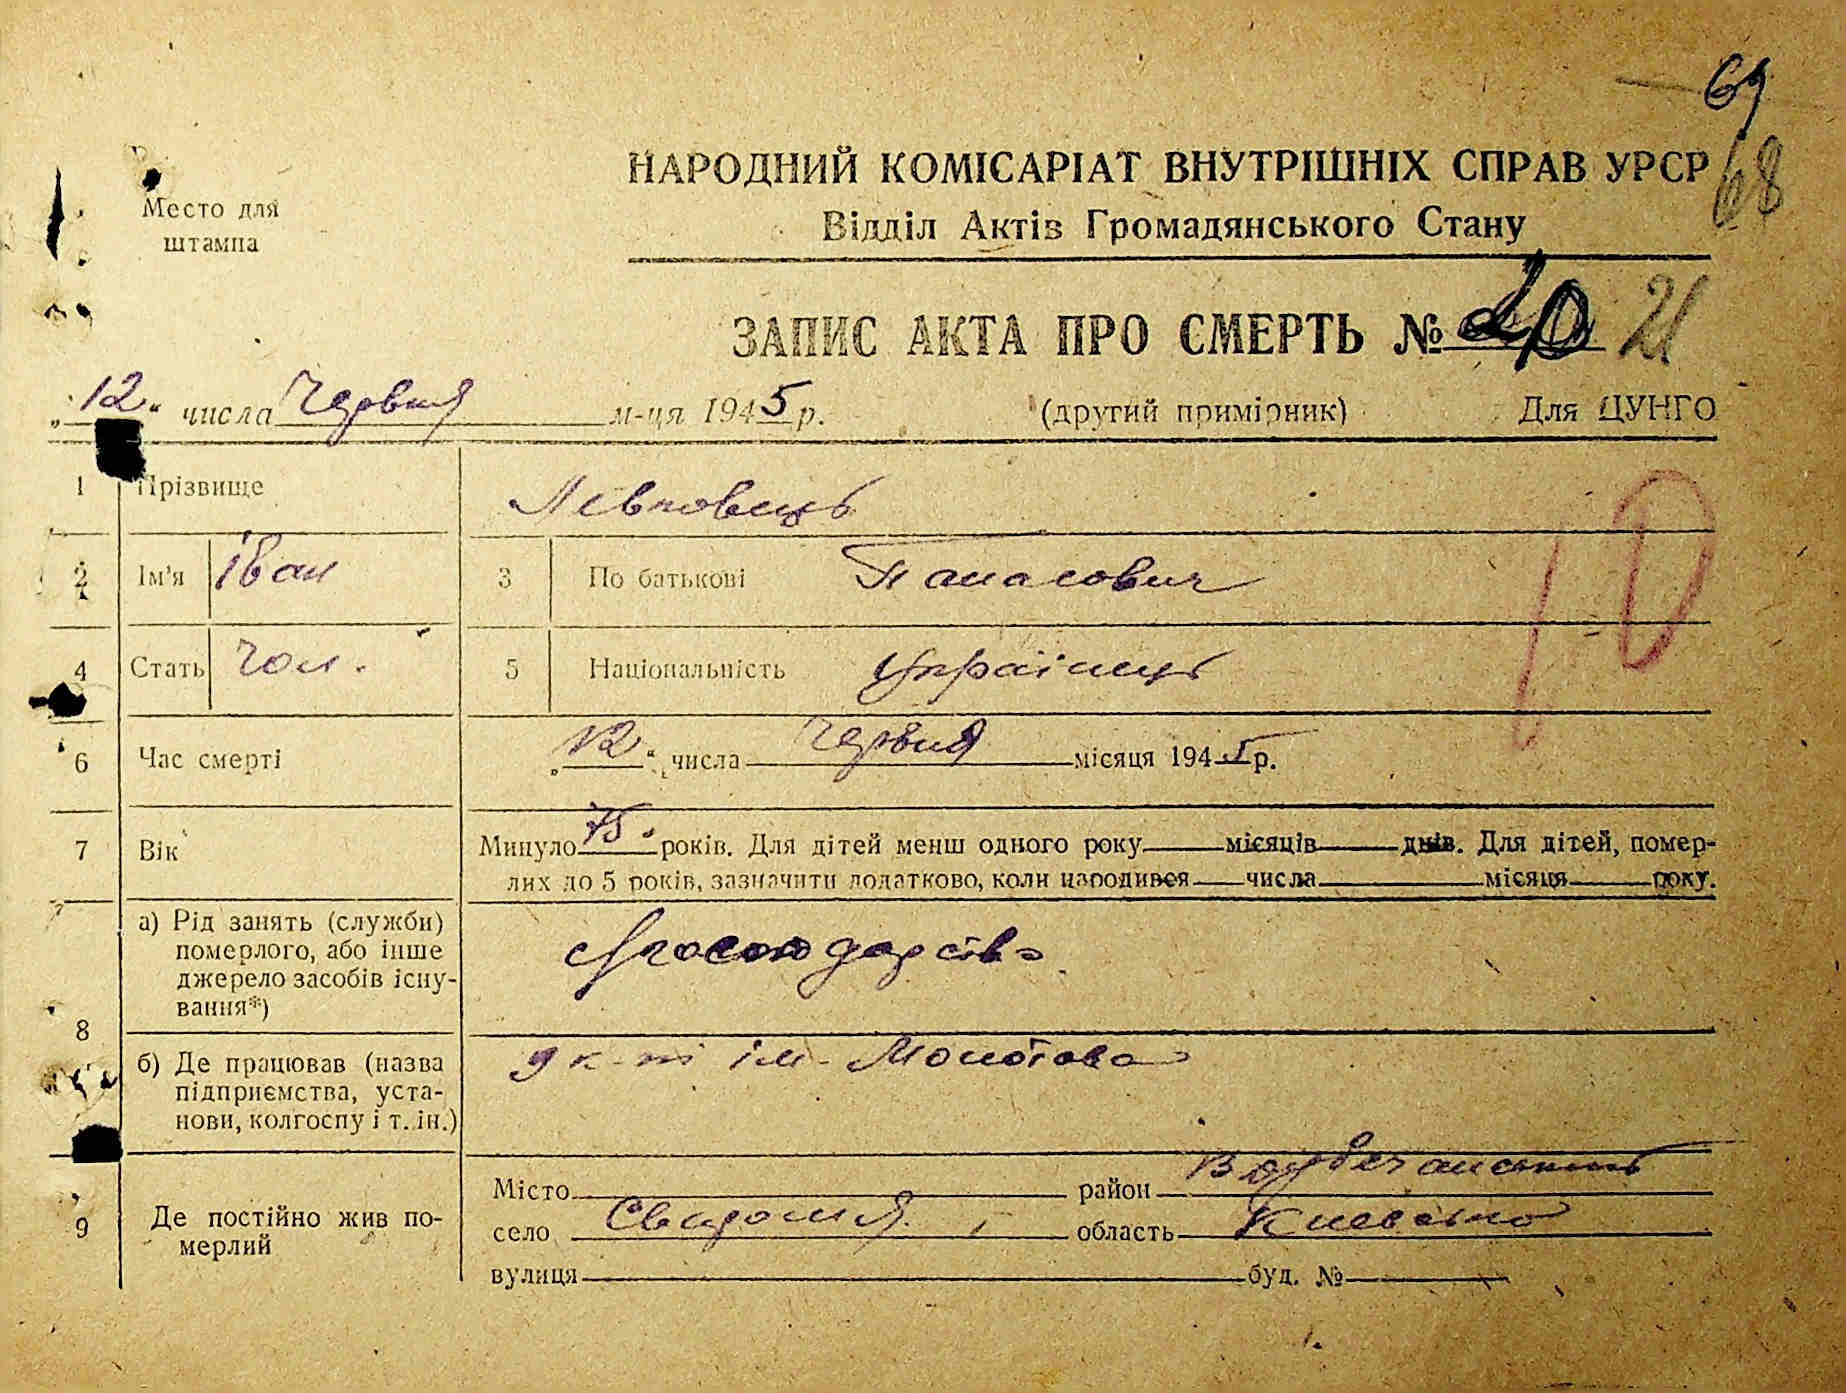 69
68
Место для
штампа
НАРОДНИЙ КОМІСАРІАТ ВНУТРІШНІХ СПРАВ УРСР
Відділ Актів Громадянського Стану
ЗАПИС АКТА ПРО СМЕРТЬ № 20 21
„12“ числа Червня м-ця 1945 р. (другий примірник) Для ЦУНГО
1 Прізвище Левковець
10
2 Ім'я Іван 3 По батькові Панасович
4 Стать Чол. 5 Національність Українець
6 Час смерті „12“ числа Червня місяця 1945 р.
7 Вік Минуло 75 років. Для дітей менш одного року місяців днів. Для дітей, помер-
лих до 5 років, зазначити додатково, коли народився числа місяця року.
8 а) Рід занять (служби)
померлого, або інше
джерело засобів існу-
вання*)
с/господарство
б) Де працював (назва
підприємства, уста-
нови, колгоспу і т. ін.)
у к-пі ім. Молотова
9 Де постійно жив по-
мерлий
Місто район
село Свидоля область Киевська
вулиця буд. №